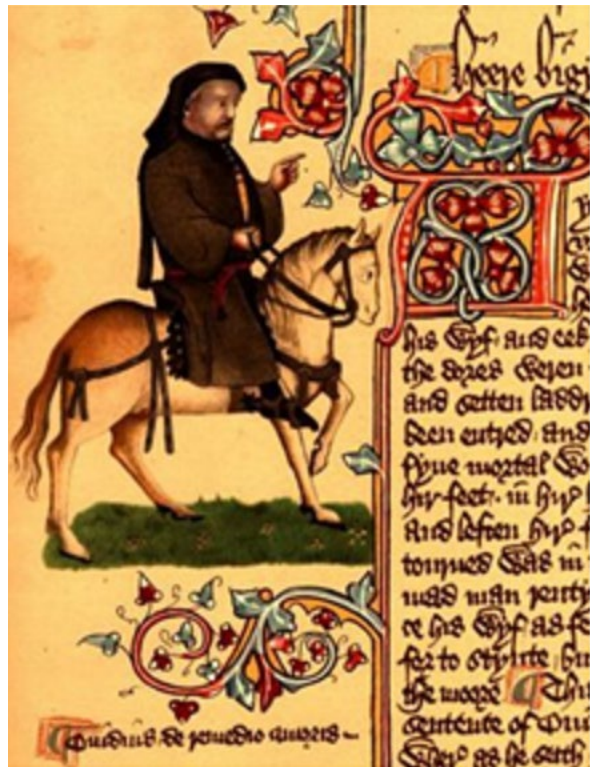 Heere bigy
his wyf and eek
the dores weren
and setten laddr
been entred and
fyue mortal wo
hir feet in hir h
And leften hir f
tourned was in
mad man renty
ce his wyf as fe
fer to stynte but
the moore Thi
sentence of Oui
Wher as he seith
Ouidius de remedio amoris